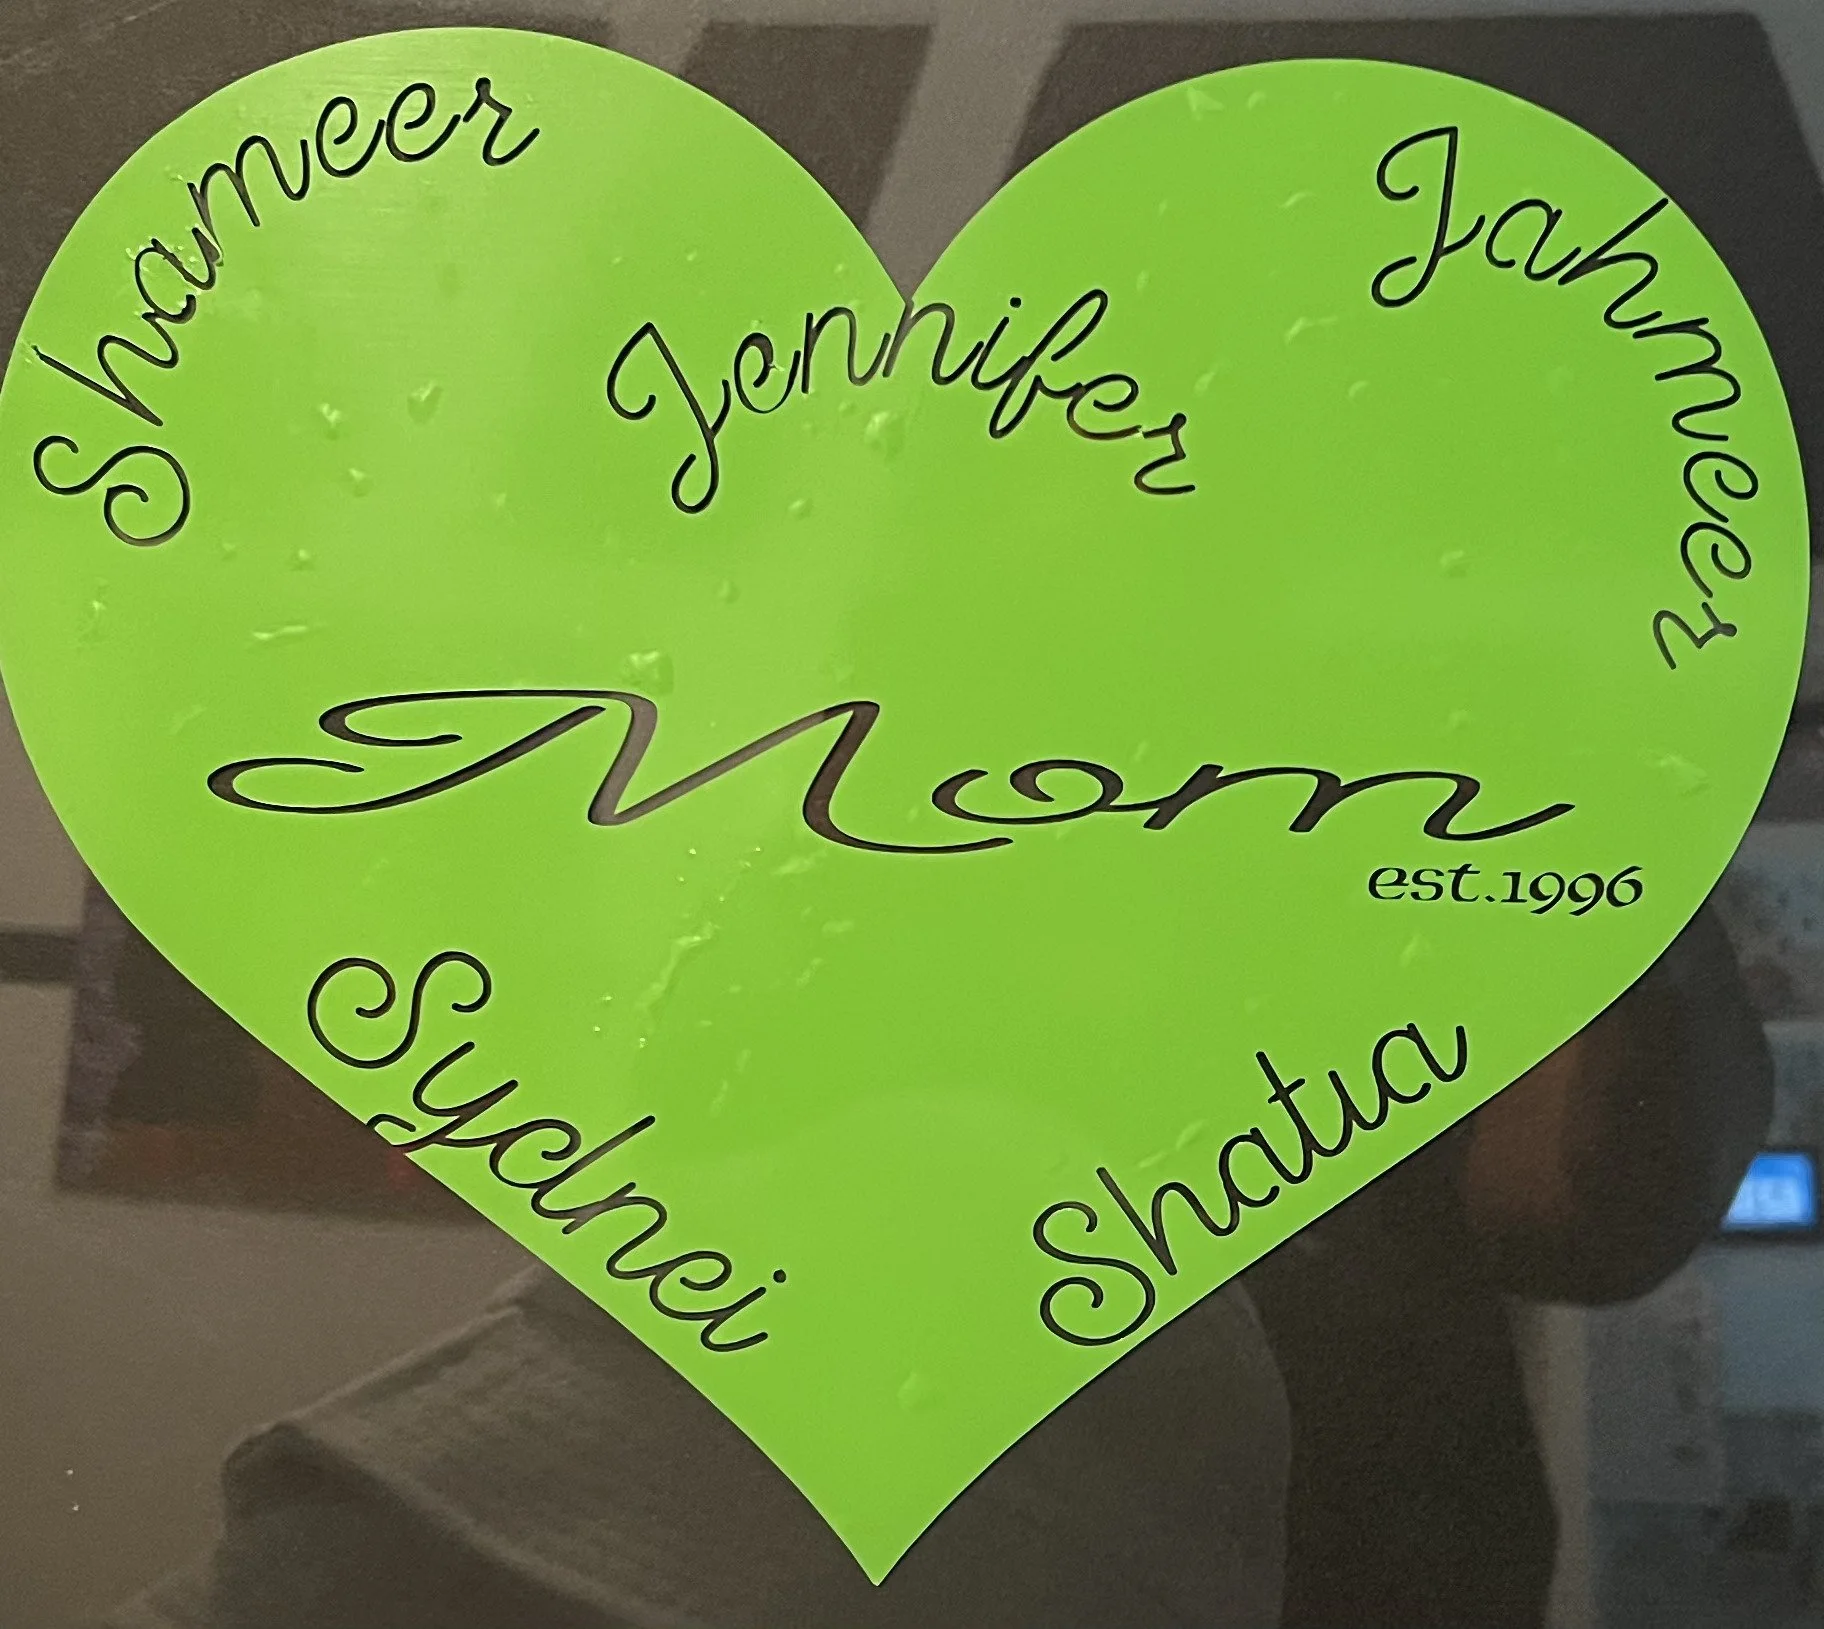 Shameer
Jennifer
Jahmeer
Mom
est.1996
Sydnei
Shatia